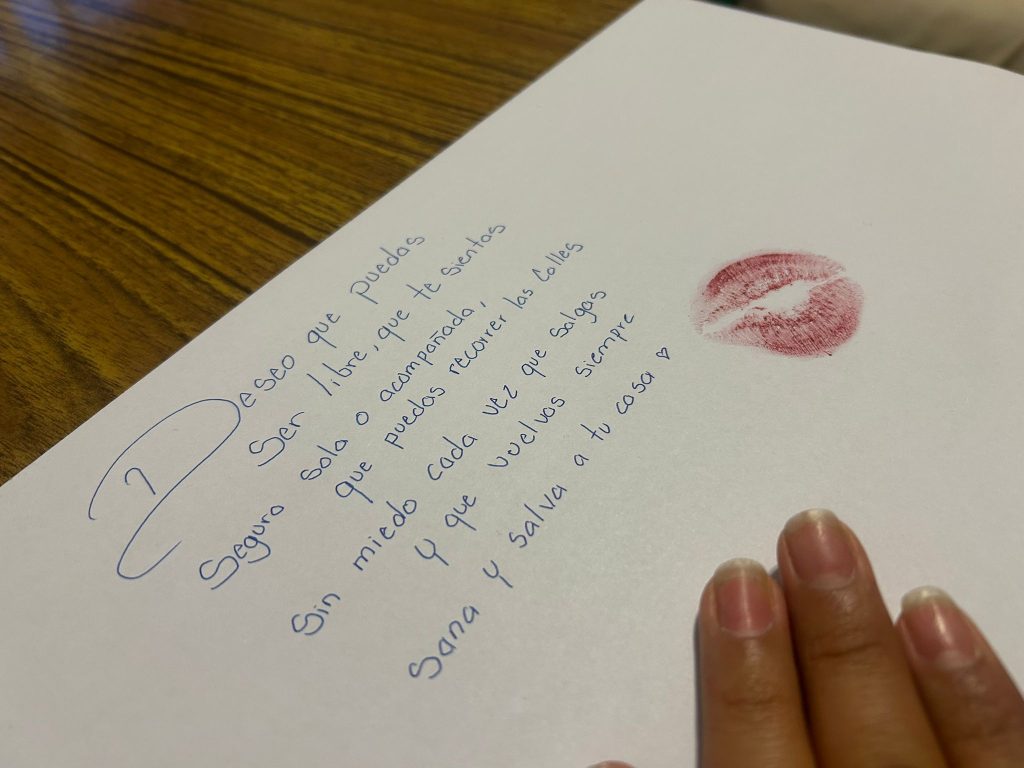 Deseo que puedas
Ser libre, que te sientas
Seguro sola o acompañada,
que puedas recorrer las Calles
Sin miedo cada vez que salgas
y que vuelvas siempre
Sana y salva a tu casa ♡